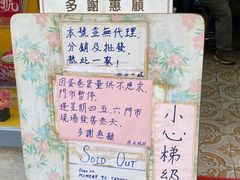 多謝惠顧
本號並無代理,
分銷及批發,
祇此一家!
因蛋卷貨量供不應求,
門市暫停,
逢星期四.五.六門市
現場發售叁天.
多謝惠顧
SOLD OUT
小心梯級